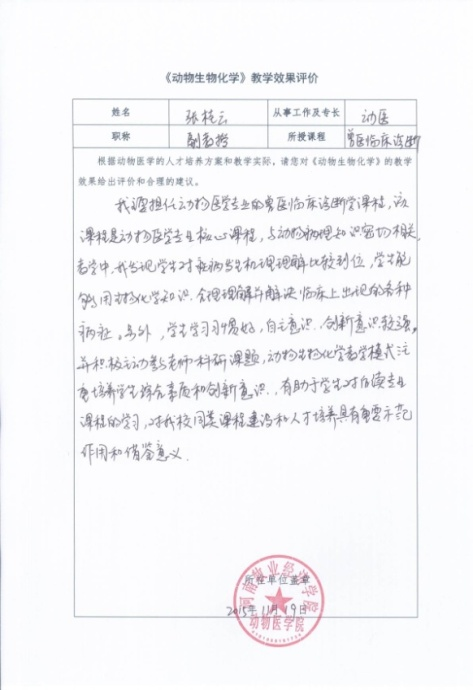 《动物生物化学》教学效果评价
姓名 张桂云 从事工作及专长 动医
职称 副教授 所授课程 兽医临床诊断
根据动物医学的人才培养方案和教学实际，请您对《动物生物化学》的教学
效果给出评价和合理的建议。
我主要担任动物医学专业的兽医临床诊断学课程，该
课程是动物医学专业核心课程，与动物病理知识密切相关。
教学中，我发现学生对疾病发生机理理解比较到位，学生能
够用生物化学知识，合理理解并解决临床上出现的各种
病症。另外，学生学习习惯好，自主意识、创新意识较强，
并积极主动参与老师科研课题，动物生物化学教学模式注
重培养学生综合素质和创新意识，有助于学生对后续专业
课程的学习，对我校同类课程建设和人才培养具有重要示范
作用和借鉴意义。
所在单位盖章
2015年11月19日
河南牧业经济学院
动物医学院